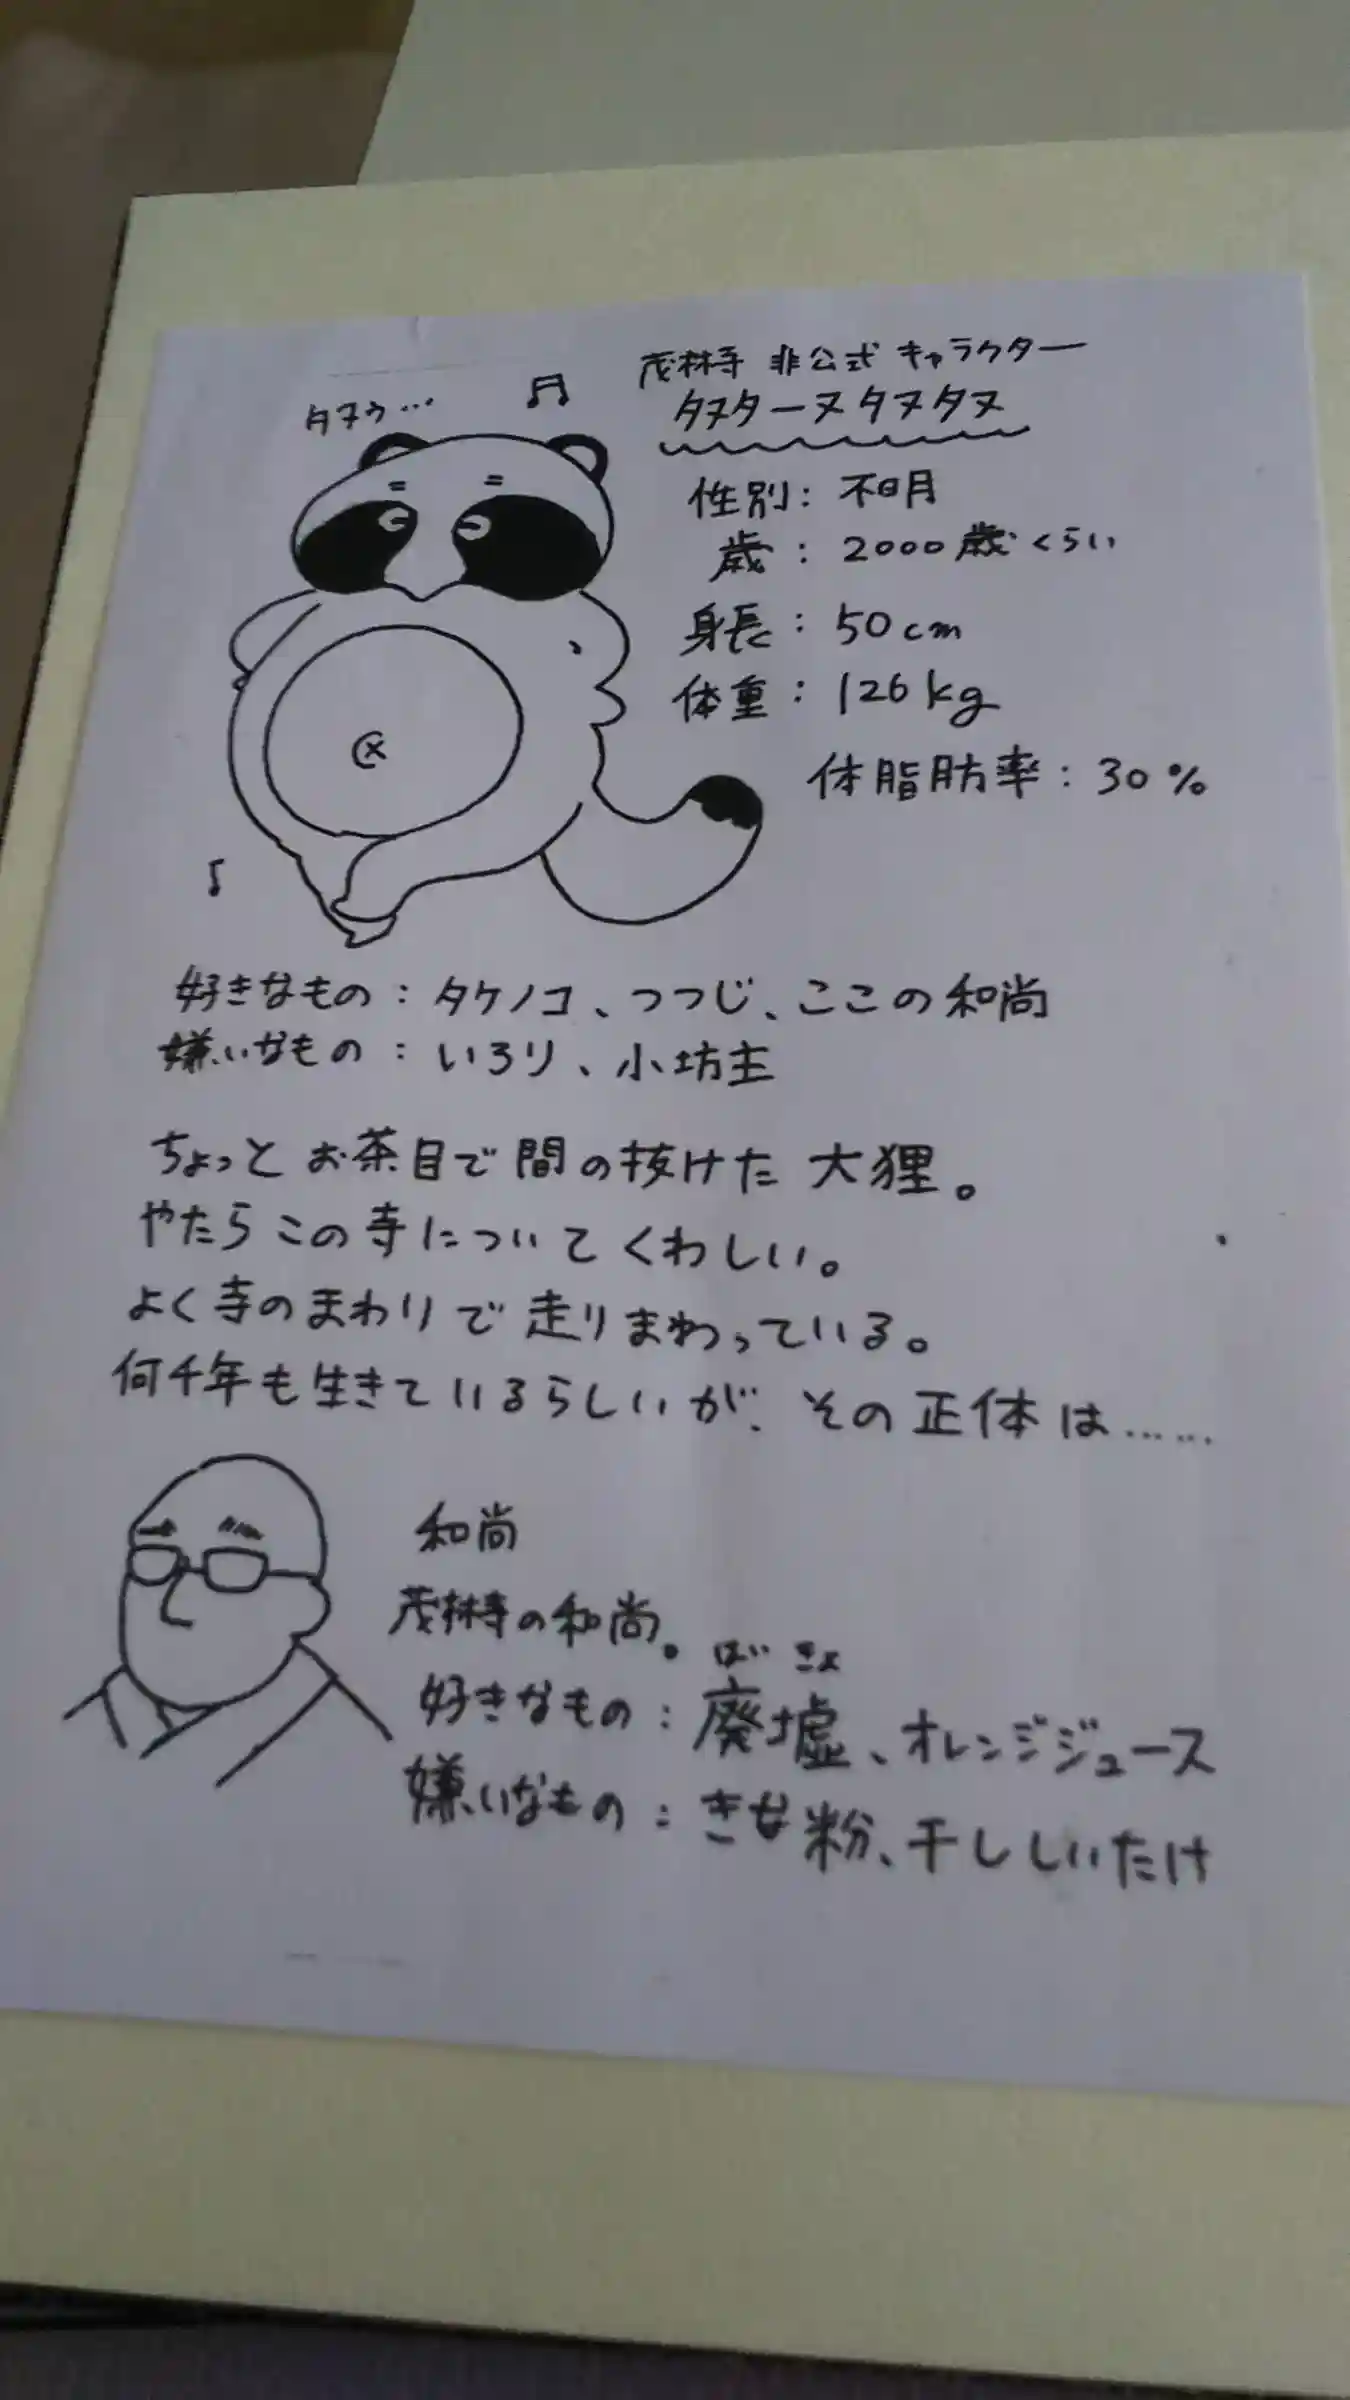 茂林寺 非公式 キャラクター
タヌゥ…
タヌターヌタヌタヌ
性別：不明
歳：2000歳くらい
身長：50cm
体重：126kg
体脂肪率：30%
好きなもの：タケノコ、つつじ、ここの和尚
嫌いなもの：いろり、小坊主
ちょっとお茶目で間の抜けた大狸。
やたらこの寺についてくわしい。
よく寺のまわりで走りまわっている。
何千年も生きているらしいが、その正体は……
和尚
茂林寺の和尚。
ばい きょ
好きなもの：廃墟、オレンジジュース
嫌いなもの：きな粉、干ししいたけ